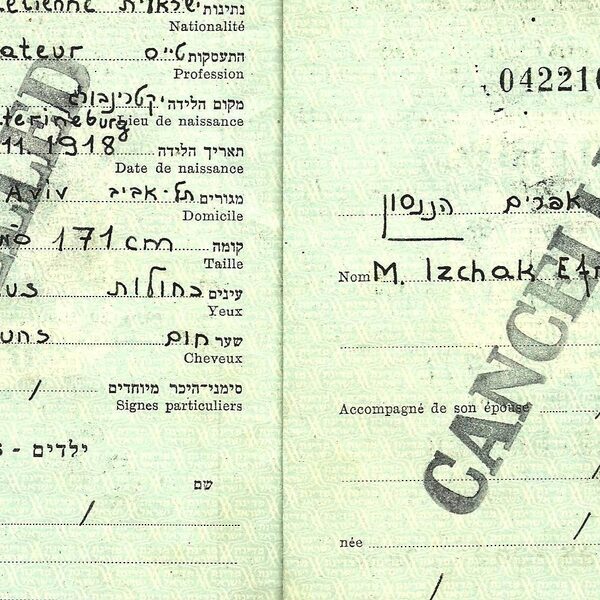 נתינות ישראלית
Nationalité
התעסקות טייס ateur
Profession
מקום הלידה יקטרינבורג
terineburg Lieu de naissance
תאריך הלידה 11.1918
Date de naissance
מגורים תל-אביב Aviv
Domicile
קומה 171 cm
Taille
עינים כחולות
Yeux
שער חום
Cheveux
סימני-היכר מיוחדים /
Signes particuliers
ילדים -
שם
/
04221
אפרים הננסון
Nom M. Izchak Ef
Accompagné de son épouse
née /
/
CANCELLED
CANCELL